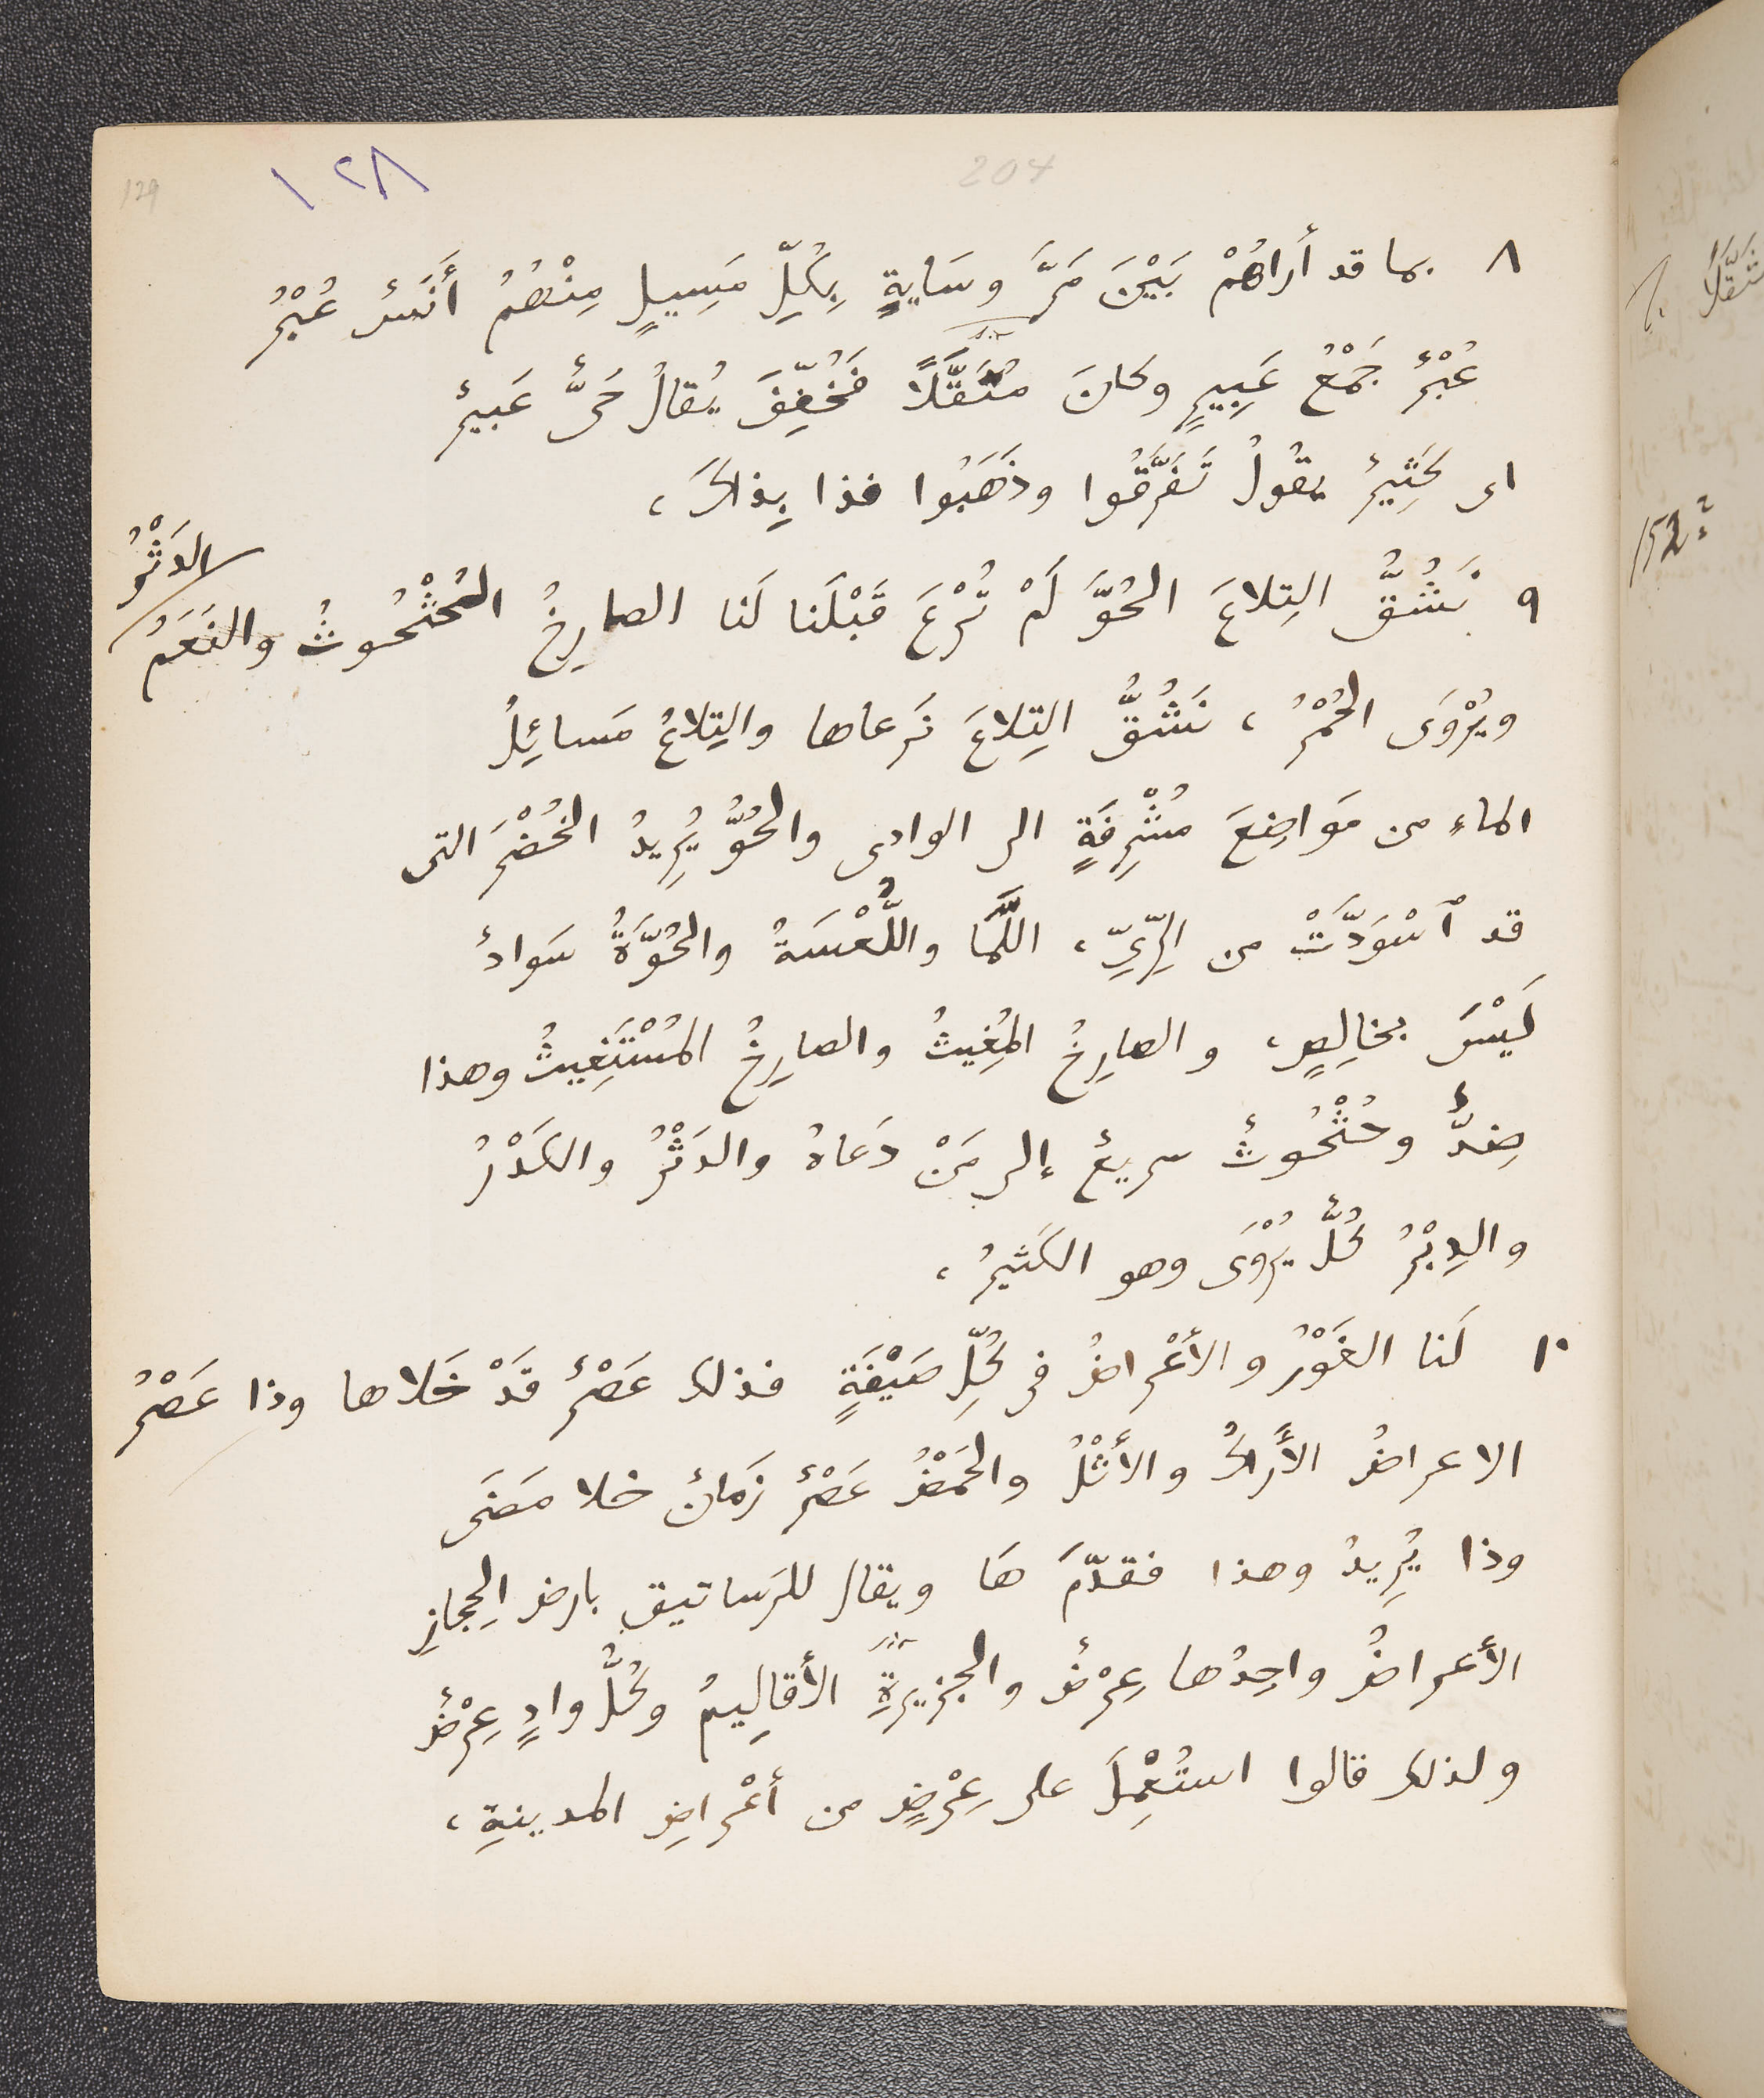 129
١٢٨
204
٨ بما قد أراهُمْ بَيْنَ مَرَّ وسَايَةٍ بِكُلِّ مَسِيلٍ مِنْهُمُ أَنَسٌ عُبْرُ
عُبْرٌ جَمْعُ عَبِيرٍ وكانَ مُثَقَّلًا فَخُفِّفَ يُقالُ حَىٌّ عَبِيرٌ
اى كَثِيرٌ يقُولُ تَفَرَّقُوا وذَهَبُوا فذا بِذاكَ،
٩ نَشُقُّ التِلاعَ الحُوَّ لَمْ تُرْعَ قَبْلَنا لَنا الصارِخُ الحُثْحُوثُ والنَعَمُ
الدَثْرُ
ويُرْوَى الحُمْرُ، نَشُقُّ التِلاعَ نَرعاها والتِلاعُ مَسائِلُ
الماءِ من مَوَاضِعَ مُشْرِفَةٍ الى الوادى والحُوُّ يُرِيدُ الخُضْرَ التى
قد ٱسْوَدَّتْ من الرِّىِّ، اللَّمَا واللُّعْسَةُ والحُوَّةُ سَوادٌ
لَيْسَ بخالِصٍ، والصارِخُ المُغِيثُ والصارِخُ المُسْتَغِيثُ وهذا
ضِدٌّ وحُثْحُوثٌ سريعٌ إلى مَنْ دَعاهُ والدَثْرُ والكَدْرُ
والدِبْرُ كُلٌّ يُرْوَى وهو الكَثيرُ،
١٠ لَنا الغَوْرُ والأَعْراضُ فى كُلِّ صَيْفَةٍ فذلك عَصْرٌ قَدْ خَلاها وذا عَصْرُ
الاعراضُ الأَراكُ والأَثْلُ والحَمْضُ عَصْرٌ زَمانٌ خلا مَضَى
وذا يُرِيدُ وهذا فقدّمَ هَا ويقال للرَساتيق بارض الحِجازِ
الأَعراضُ واحِدُها عِرْضٌ والجزيرةِ الأَقالِيمُ وكُلُّ وادٍ عِرْضٌ
ولذلك قالوا استُعْمِلَ على عِرْضٍ من أَعْراضِ المدينةِ،